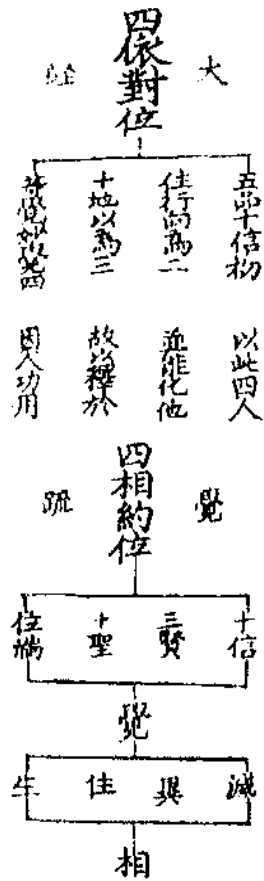 四依對位
大
五品十信初　以此四人
住行向為二　並能化他
十地以為三　故以釋於
等覺妙覺四　因人功用
四相約位
覺　疏
十信　三賢　十聖　位滿
覺
滅　異　住　生
相